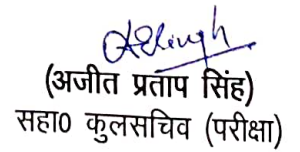 (अजीत प्रताप सिंह)
सहा० कुलसचिव (परीक्षा)